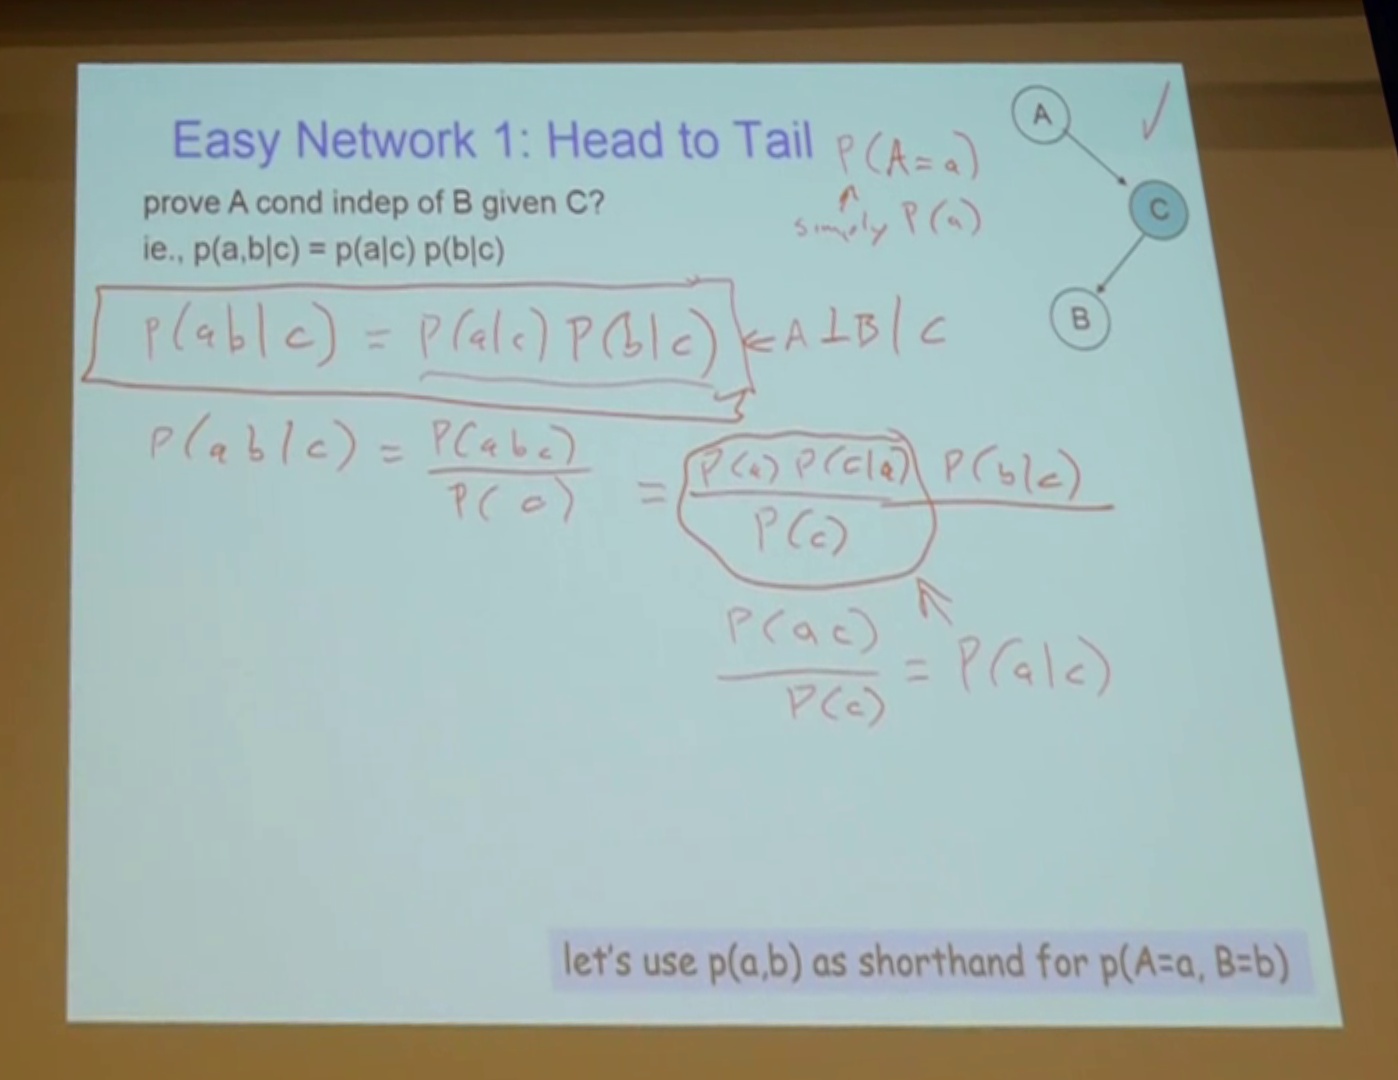 Easy Network 1: Head to Tail
P(A=a)
simply P(a)
A
C
B
prove A cond indep of B given C?
ie., p(a,b|c) = p(a|c) p(b|c)
P(ab|c) = P(a|c) P(b|c) ⇐ A⊥B|C
P(ab|c) = P(abc) / P(c) = P(a) P(c|a) P(b|c) / P(c)
P(ac) / P(c) = P(a|c)
let's use p(a,b) as shorthand for p(A=a, B=b)